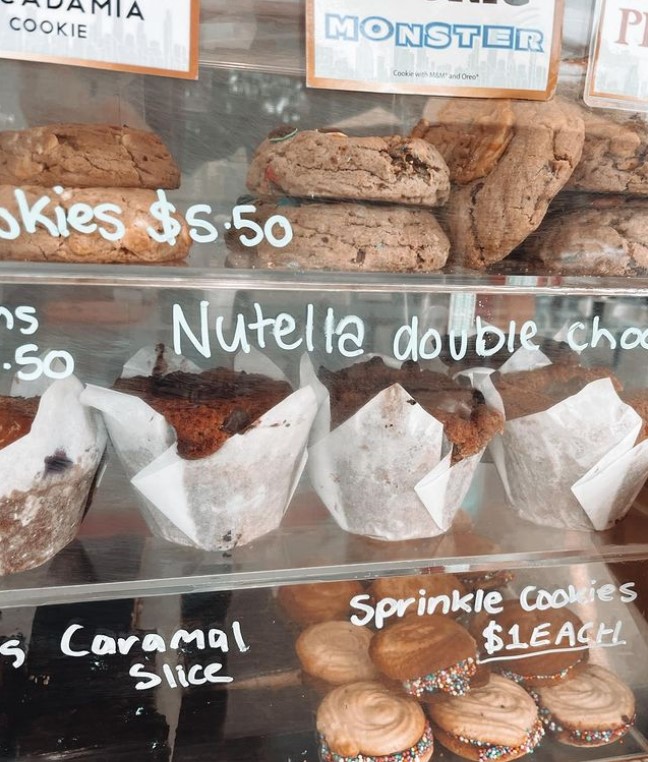 CADAMIA
COOKIE
MONSTER
Cookie with M&M® and Oreo®
okies $5.50
ns
.50
Nutella double choc
s Caramal
Slice
Sprinkle Cookies
$1 EACH